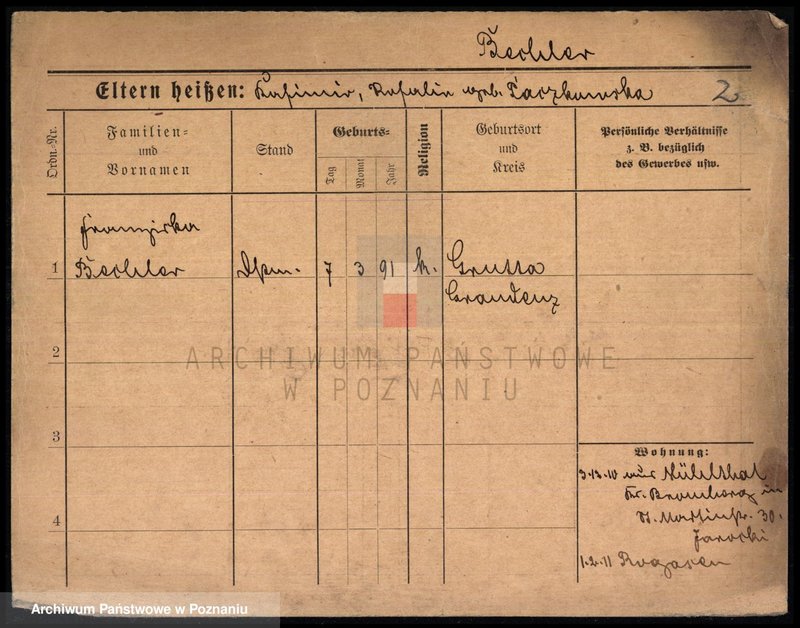 Bechler
Eltern heißen: Kasimir, Rosalie geb. Paczkowska 2
Ordn.-Nr.
Familien=
und
Vornamen
Stand
Geburts=
Tag
Monat
Jahr
Religion
Geburtsort
und
Kreis
Persönliche Verhältnisse
z. B. bezüglich
des Gewerbes usw.
Franziska
1 Bechler 7 3 91 k. Grutta
Graudenz
ARCHIWUM PAŃSTWOWE
W POZNANIU
2
3
Wohnung:
aus Mühlthal
Kr. Bromberg in
St. Martinstr. 30.
Jarocki
1.2.11 Rogasen
4
Archiwum Państwowe w Poznaniu